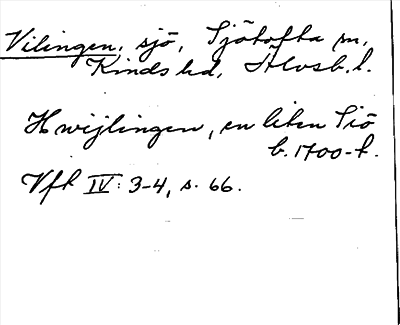 Vilingen, sjö, Sjötofta sn,
Kinds hd, Älvsb. l.
Hwijlingen, en liten Siö
b. 1700-t.
Vfk IV: 3-4, s. 66.